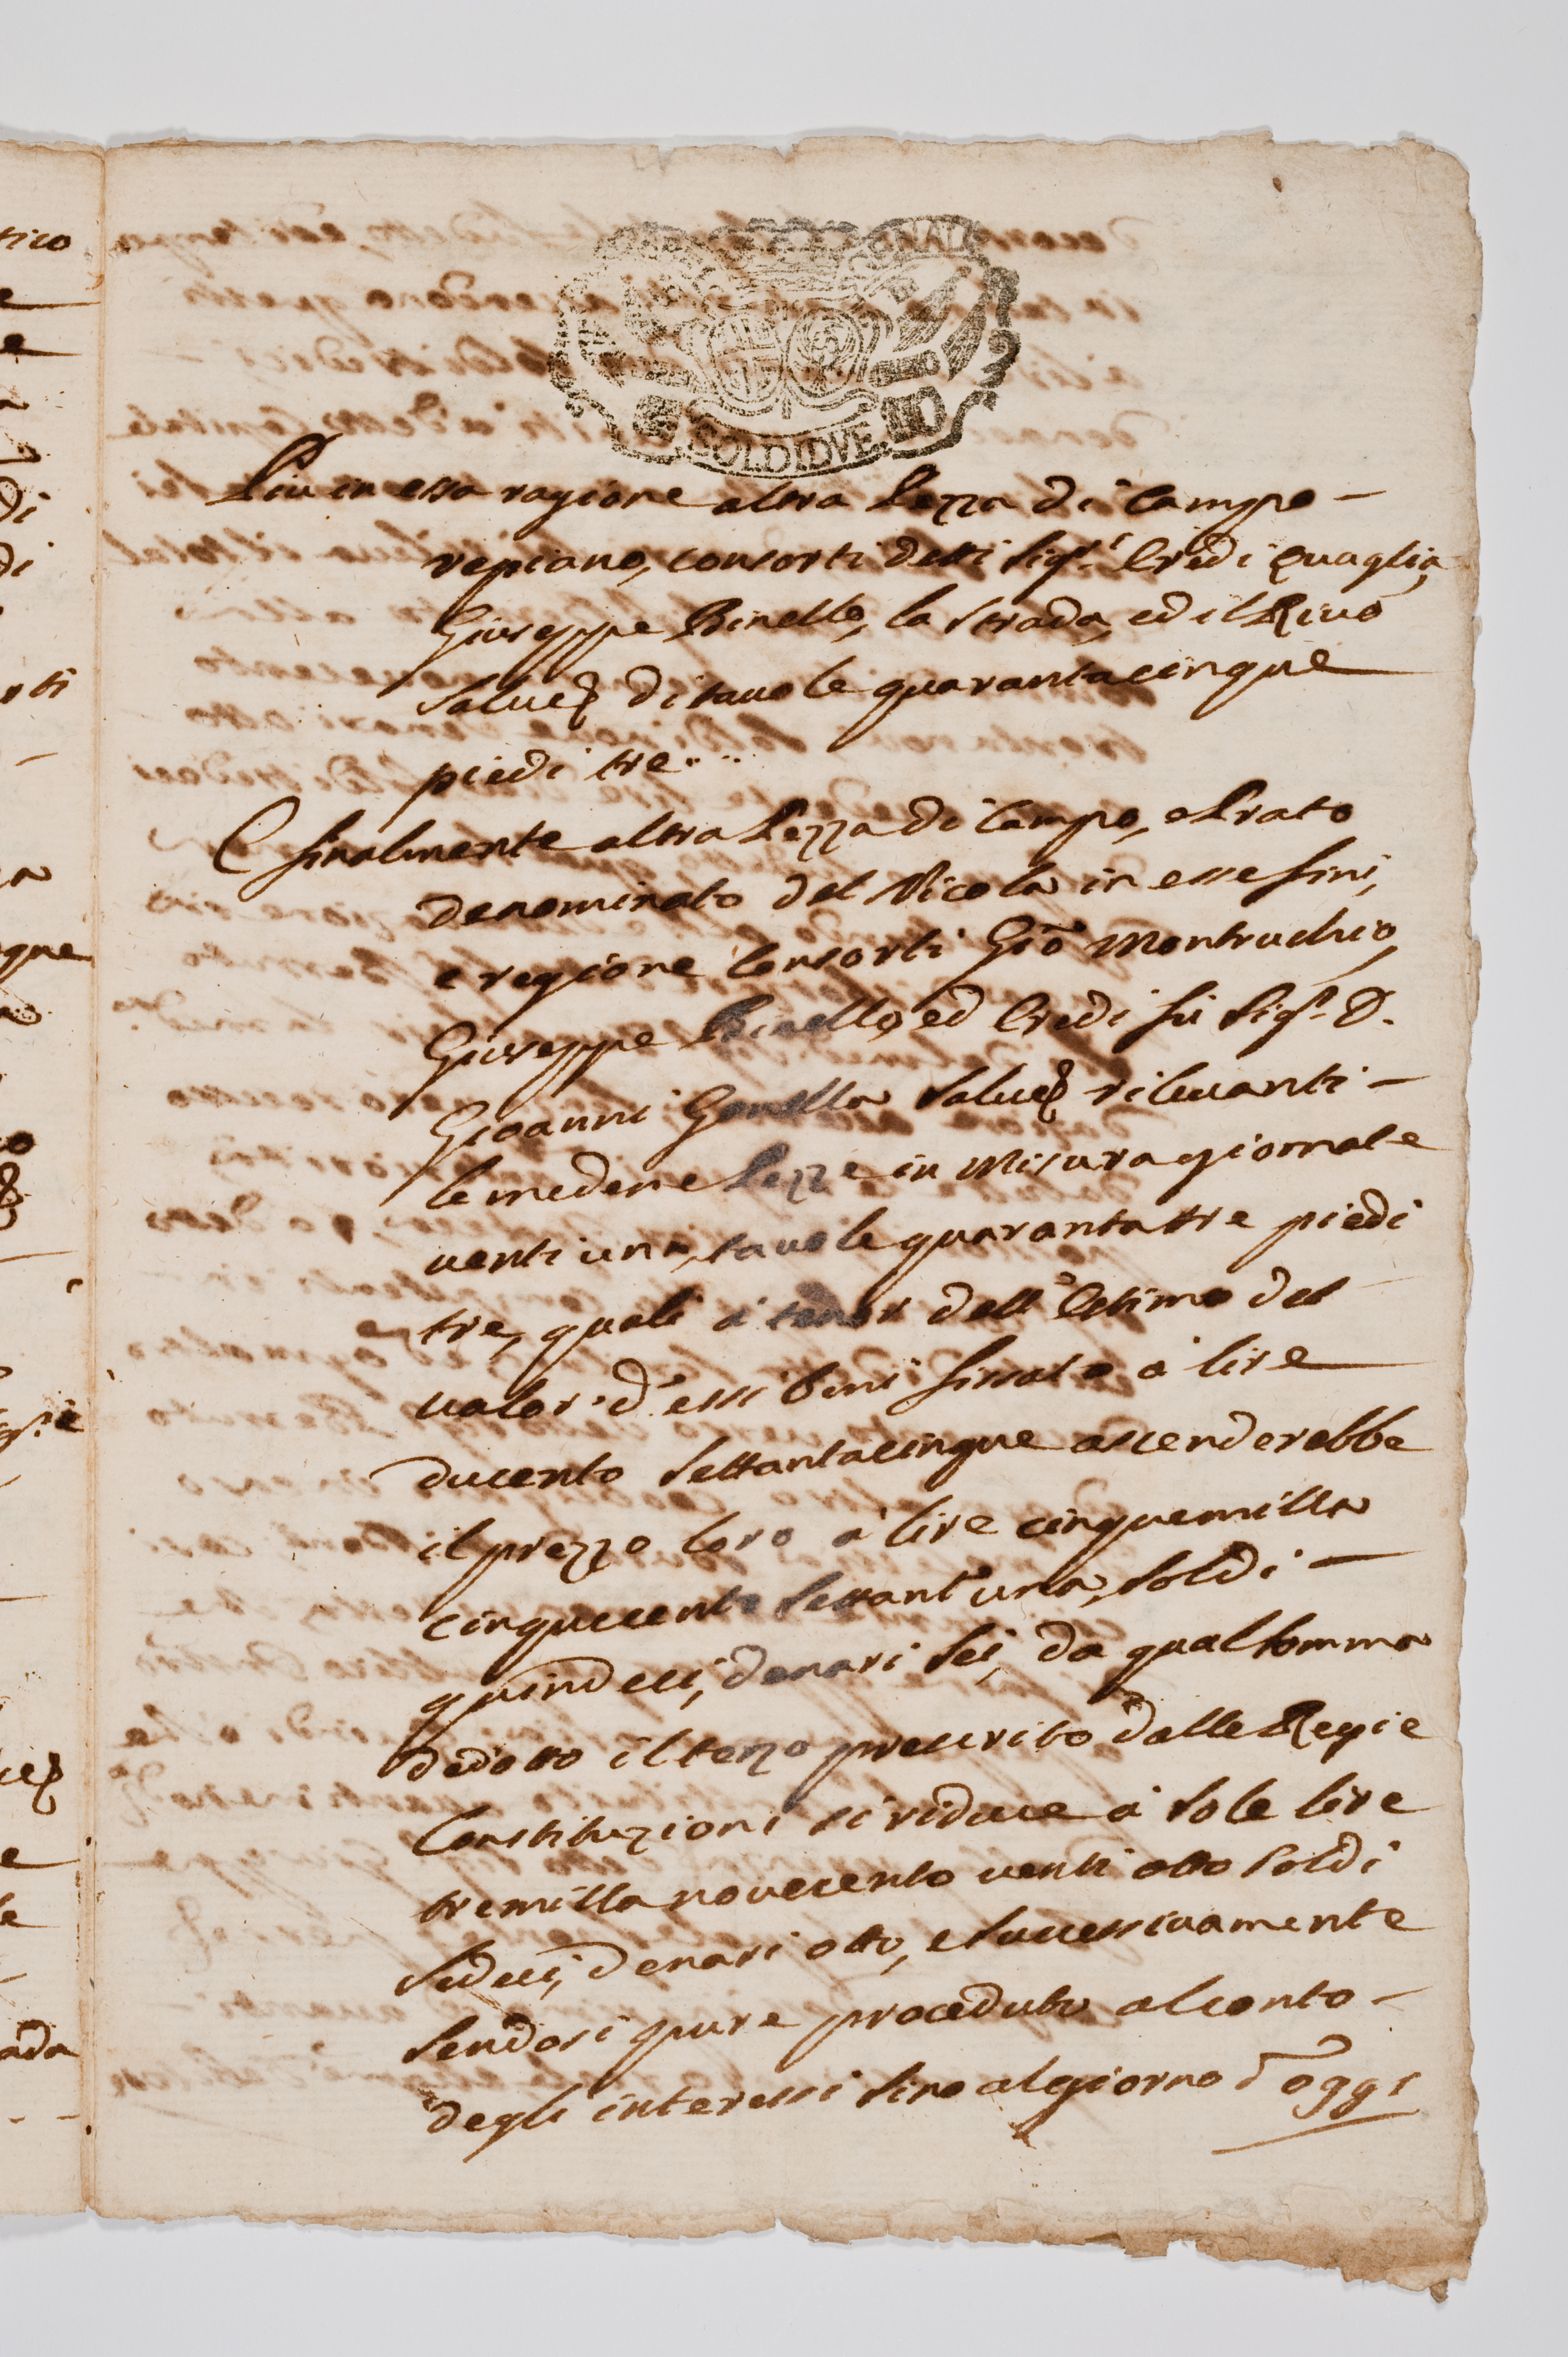 SOLDI DVE
Piu in essa ragione altra Pezza di Campo -
repiano, consorti detti Sig.ri Eredi Quaglia,
Giuseppe Binello, la strada, ed il Rivo
salvis di tavole quarantacinque
piedi tre....
E finalmente altra Pezza di Campo, e Prato
denominato del Vicola in esse fini,
e regione Consorti Gio Montruchio,
Giuseppe Binello, ed Eredi fu Sig.r D.
Gioanni Gonella salvis rilevanti -
le medeme Pezze in Misura giornate
venti una, tavole quarantatre piedi
tre, quali a tenor dell'Estimo del
valor d'essi beni fissato a lire
ducento settantacinque ascenderebbe
il prezzo loro a lire cinquemilla
cinquecento settant'una, soldi -
quindeci, denari sei, da qual somma
dedotto il terzo prescritto dalle Regie
Constituzioni si riduce a sole lire
tremilla novecento venti otto soldi
sedeci, denari otto, e successivamente
sendosi pure proceduto al conto -
degli interessi sino al giorno d'oggi